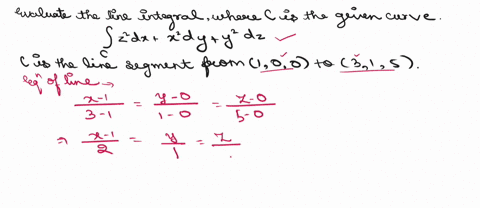 Evaluate the line integral, where C is the given curve.
∫_C z²dx + x²dy + y²dz ✓
C is the line segment from (1,0,0) to (3,1,5).
Eqⁿ of line →
(x-1)/(3-1) = (y-0)/(1-0) = (z-0)/(5-0)
⇒ (x-1)/2 = y/1 = z/